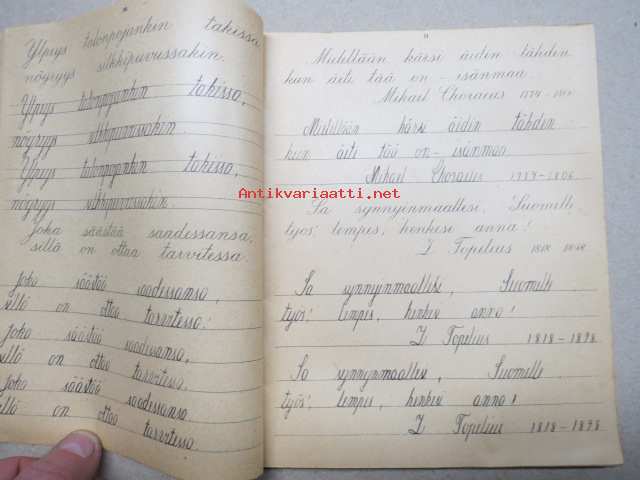 Ylpeys talonpojankin takissa,
nöyryys silkkipuvussakin.
Ylpeys talonpojankin takissa,
nöyryys silkkipuvussakin.
Ylpeys talonpojankin takissa,
nöyryys silkkipuvussakin.
Joka säästää saadessansa,
sillä on ottaa tarvitessa.
Joka säästää saadessansa,
sillä on ottaa tarvitessa.
Joka säästää saadessansa,
sillä on ottaa tarvitessa.
Joka säästää saadessansa
sillä on ottaa tarvitessa.
Mielittään kärsi äiden tähden
kun äiti tää on - isänmaa.
Mikael Choraeus 1774-
Mielittään kärsi äidin tähden
kun äite tää on - isänmaa
Mikael Choraeus 1774-1806
Antikvariaatti.net
Sa synnyinmaallesi, Suomelle,
työs' lempes, henkesi anna!
Z Topelius 1818 1898
Sa synnyinmaallesi, Suomelle
työs', lempes, henkes anna!
Z Topelius 1818-1898
Sa synnyinmaallesi, Suomelle
työs', lempes, henkes anna!
Z Topelius 1818-1898